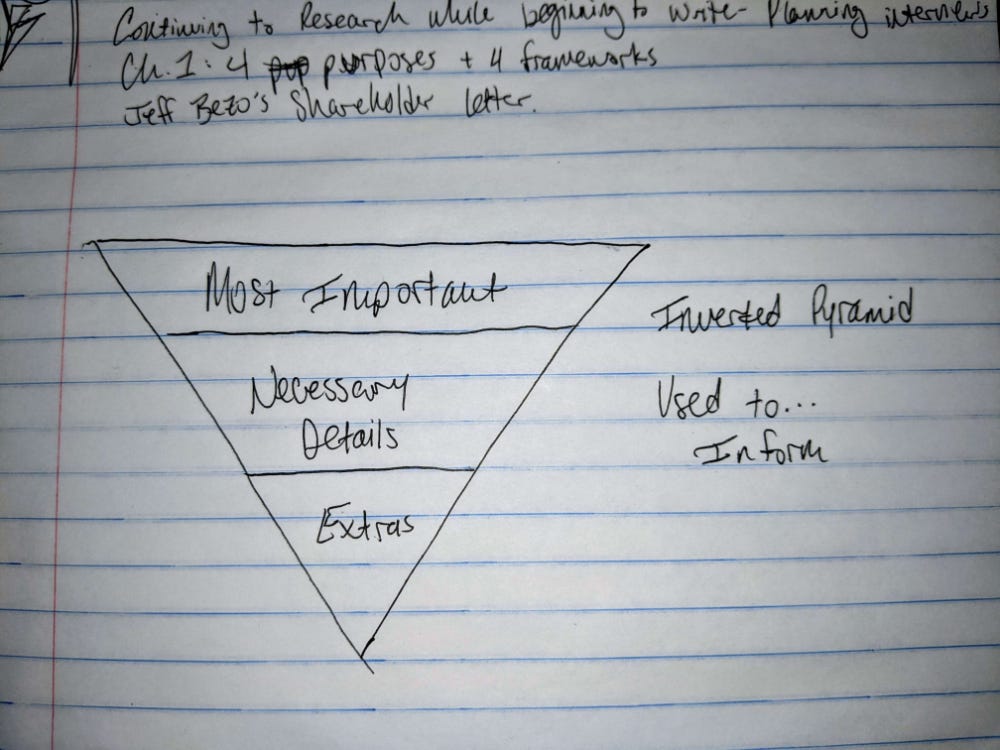 Continuing to Research while beginning to write- Planning interviews
Ch. 1: 4 purposes + 4 frameworks
Jeff Bezo's Shareholder letter.
Most Important
Inverted Pyramid
Necessary
Details
Used to...
Inform
Extras